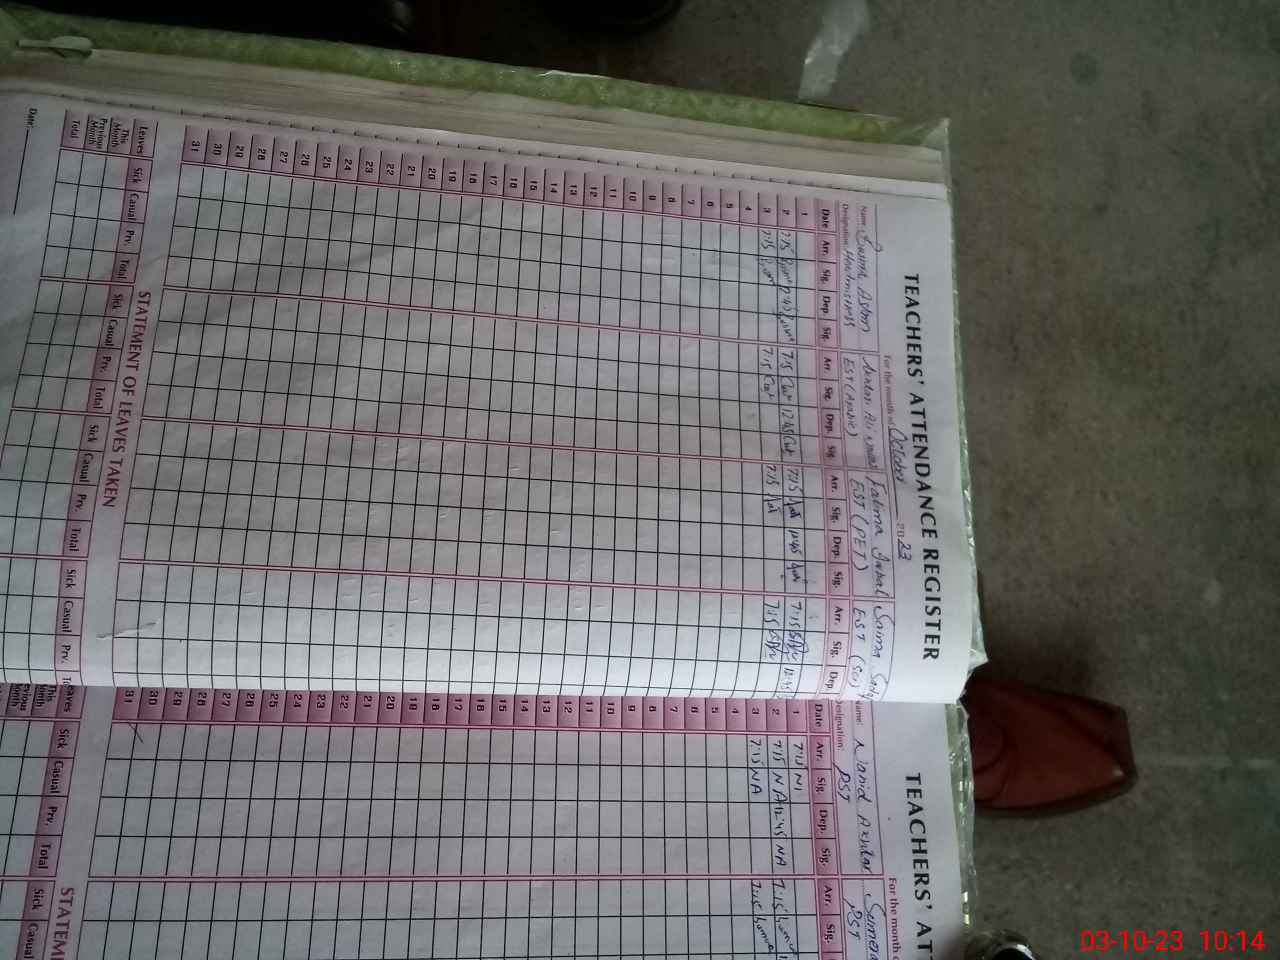 TEACHERS' ATTENDANCE REGISTER
For the month of October 2023
Name:
Designation: Headmistress
EST (Arabic)
Fatima Iqbal
EST (PET)
Saima
EST (Sci)
Date Arr. Sig. Dep. Sig. Arr. Sig. Dep. Sig. Arr. Sig. Dep. Sig. Arr. Sig. Dep.
1
2 7:15 12:45 7:15 12:45 7:15 12:45 7:15 12:45
3 7:15 7:15 7:15 7:15
4
5
6
7
8
9
10
11
12
13
14
15
16
17
18
19
20
21
22
23
24
25
26
27
28
29
30
31
STATEMENT OF LEAVES TAKEN
Leaves Sick Casual Prv. Total Sick Casual Prv. Total Sick Casual Prv. Total Sick Casual Prv.
This Month
Previous Month
Total
Date:
TEACHERS' AT
For the month o
Name: Akhtar
Designation: PST PST
Date Arr. Sig. Dep. Sig. Arr. Sig.
1 7:15
2 7:15 NA 12:45 NA 7:15
3 7:15 NA 7:15
4
5
6
7
8
9
10
11
12
13
14
15
16
17
18
19
20
21
22
23
24
25
26
27
28
29
30
31
STATEM
Leaves Sick Casual Prv. Total Sick Casual
This Month
Previous Month
03-10-23 10:14